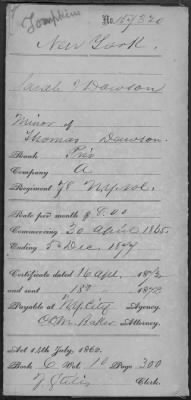 Tompkins
No. 157320
New York.
Sarah J Dawson
Minor of
Thomas Dawson.
Rank Priv
Company A
Regiment 78
Rate per month $ 8.00
Commencing 30 April 1865.
Ending 5 Dec. 1877
Certificate dated 16 Apl. 1872
and sent 18 1872
Payable at N.Y. City Agency.
Baker Attorney.
Act 14th July, 1862.
Book C Vol. 10 Page 300
Clerk.